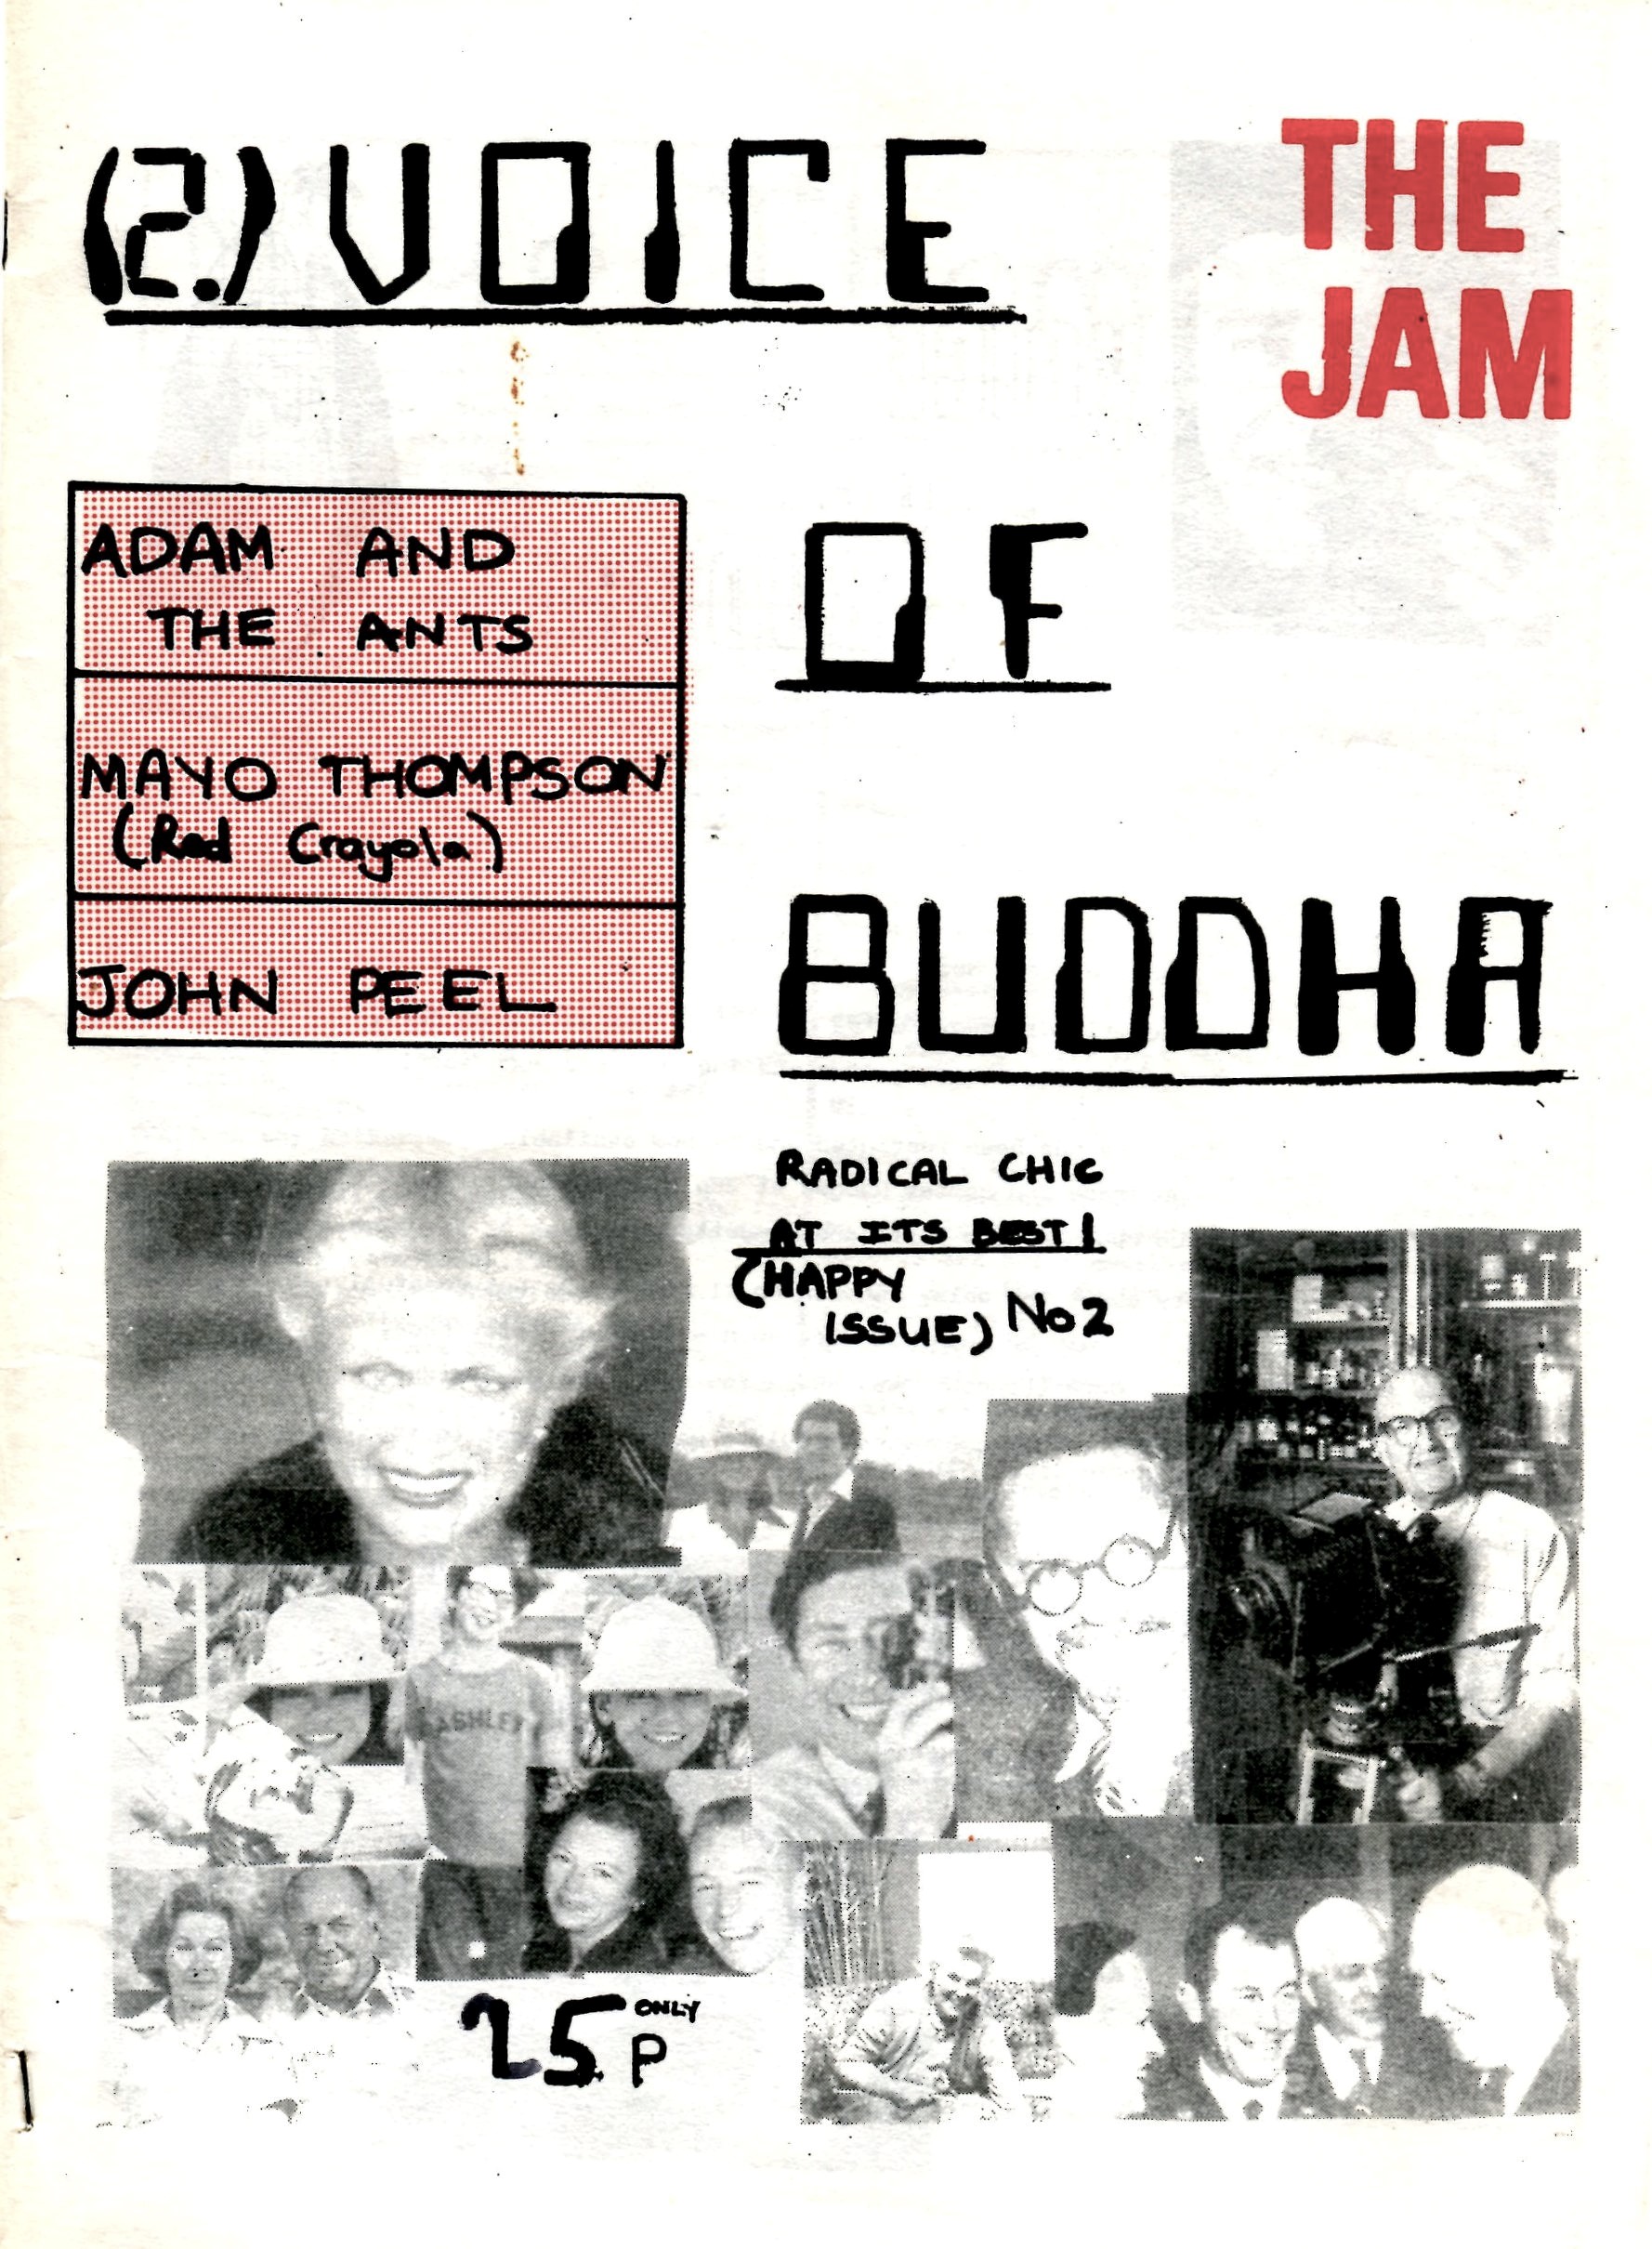 (2.) VOICE
THE
JAM
ADAM AND
THE ANTS
OF
MAYO THOMPSON
(Red Crayola)
BUDDHA
JOHN PEEL
RADICAL CHIC
AT ITS BEST!
(HAPPY
ISSUE) No 2
ASHLEY
25 ONLY
P